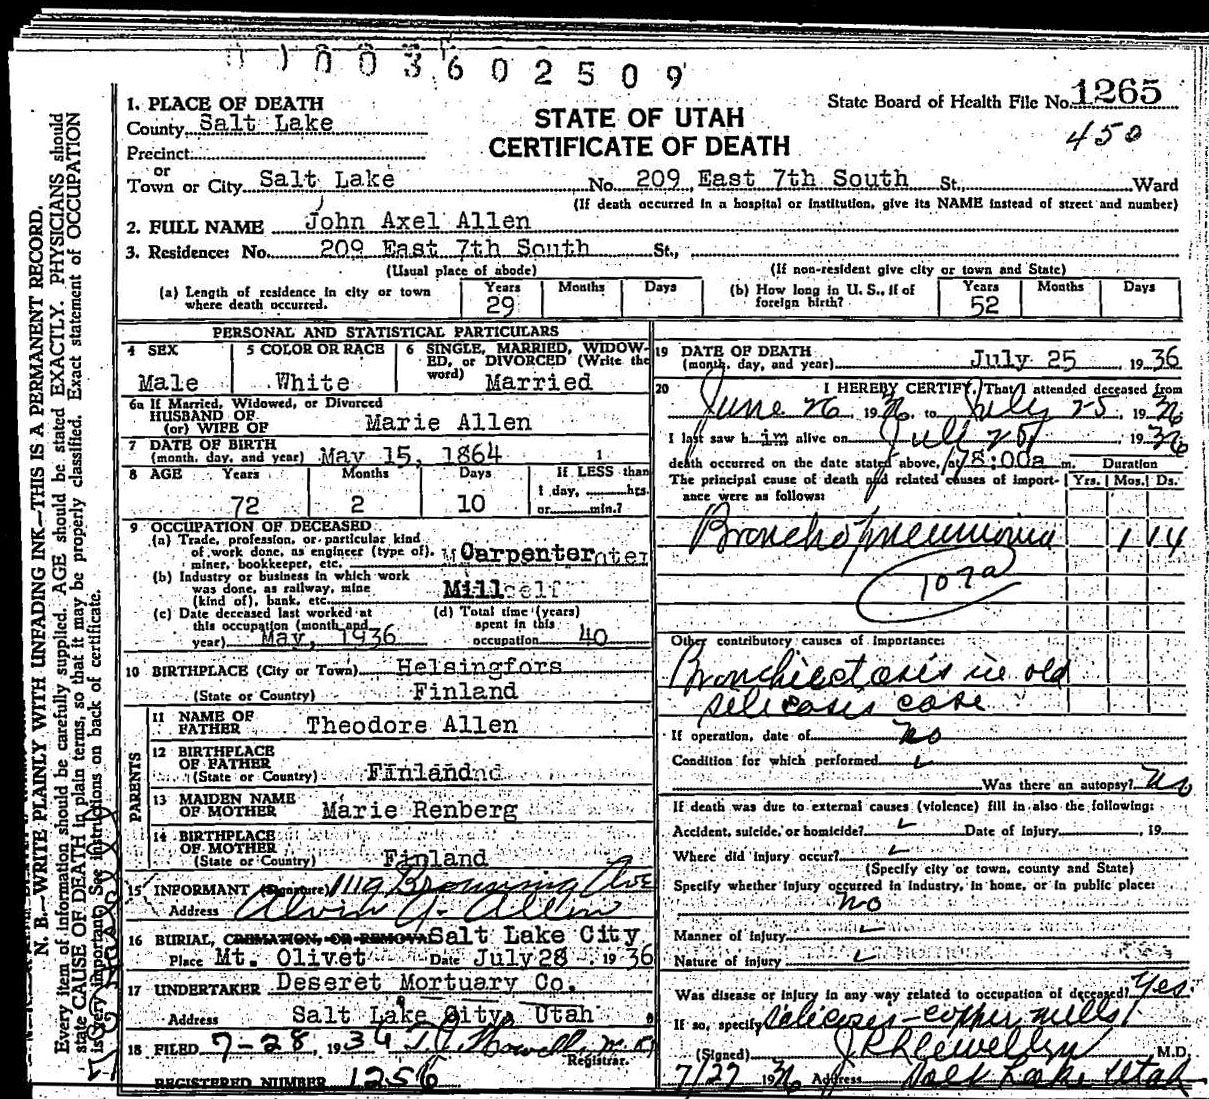 11003602509
State Board of Health File No. 1265
450
STATE OF UTAH
CERTIFICATE OF DEATH
1. PLACE OF DEATH
County Salt Lake
Precinct
or
Town or City Salt Lake No. 209 East 7th South St., Ward
(If death occurred in a hospital or institution, give its NAME instead of street and number)
2. FULL NAME John Axel Allen
3. Residence: No. 209 East 7th South St.,
(Usual place of abode) (If non-resident give city or town and State)
(a) Length of residence in city or town where death occurred. Years 29 Months Days
(b) How long in U. S., if of foreign birth? Years 52 Months Days
PERSONAL AND STATISTICAL PARTICULARS
4 SEX Male
5 COLOR OR RACE White
6 SINGLE, MARRIED, WIDOWED, or DIVORCED (Write the word) Married
6a If Married, Widowed, or Divorced
HUSBAND OF
(or) WIFE OF Marie Allen
7 DATE OF BIRTH
(month, day, and year) May 15, 1864
8 AGE Years 72 Months 2 Days 10 If LESS than 1 day, hrs. or min.?
9 OCCUPATION OF DECEASED
(a) Trade, profession, or particular kind
of work done, as engineer (type of),
miner, bookkeeper, etc. Carpenter
(b) Industry or business in which work
was done, as railway, mine
(kind of), bank, etc. Mill
(c) Date deceased last worked at
this occupation (month and
year) May, 1936
(d) Total time (years)
spent in this
occupation 40
10 BIRTHPLACE (City or Town) Helsingfors
(State or Country) Finland
PARENTS
11 NAME OF
FATHER Theodore Allen
12 BIRTHPLACE
OF FATHER
(State or Country) Finland
13 MAIDEN NAME
OF MOTHER Marie Renberg
14 BIRTHPLACE
OF MOTHER
(State or Country) Finland
15 INFORMANT (Signature) 1119 Browning Ave
Address Alvin J. Allen
16 BURIAL, CREMATION, OR REMOVAL Salt Lake City
Place Mt. Olivet Date July 28, 1936
17 UNDERTAKER Deseret Mortuary Co.
Address Salt Lake City, Utah
18 FILED 7-28, 1936 T J Howells M.D.
Registrar.
REGISTERED NUMBER 1256
19 DATE OF DEATH
(month, day, and year) July 25, 1936
20 I HEREBY CERTIFY, That I attended deceased from
June 26, 1936, to July 25, 1936
I last saw him alive on July 25, 1936
death occurred on the date stated above, at 8:00a m.
Duration
The principal cause of death and related causes of importance were as follows: Yrs. Mos. Ds.
Broncho pneumonia 1 14
107a
Other contributory causes of importance:
Bronchiectasis in old
silicosis case
If operation, date of no
Condition for which performed
Was there an autopsy? no
If death was due to external causes (violence) fill in also the following:
Accident, suicide, or homicide? Date of injury , 19
Where did injury occur?
(Specify city or town, county and State)
Specify whether injury occurred in industry, in home, or in public place:
no
Manner of injury
Nature of injury
Was disease or injury in any way related to occupation of deceased? Yes
If so, specify silicosis - copper mills
(Signed) J P Llewellyn M.D.
7/27 1936 Address Salt Lake Utah
N. B.—WRITE PLAINLY WITH UNFADING INK—THIS IS A PERMANENT RECORD.
Every item of information should be carefully supplied. AGE should be stated EXACTLY. PHYSICIANS should
state CAUSE OF DEATH in plain terms, so that it may be properly classified. Exact statement of OCCUPATION
is very important. See instructions on back of certificate.